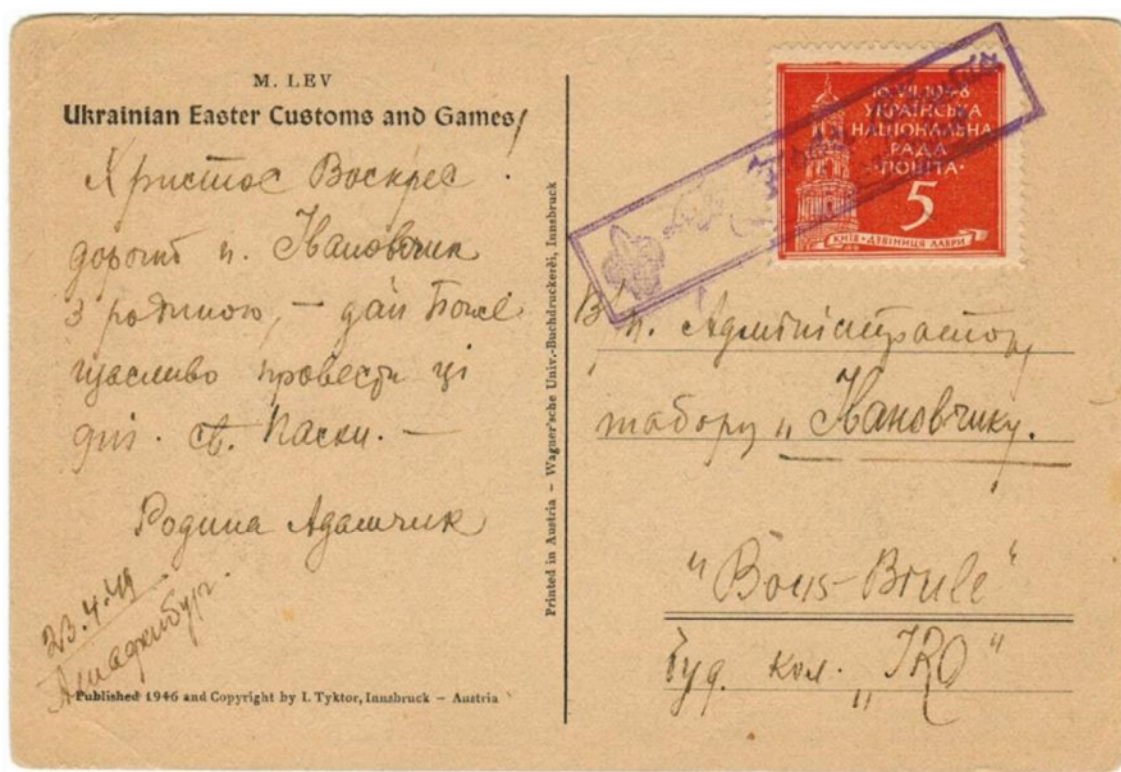 M. LEV
Ukrainian Easter Customs and Games
Христос Воскрес!
дорогий п. Івановчик
з родиною, – дай Боже
щасливо провести ці
дні св. Пасхи. –
Родина Адамчик
23.4.49
Ашафенбург.
Published 1946 and Copyright by I. Tyktor, Innsbruck – Austria
Printed in Austria – Wagner'sche Univ.-Buchdruckerei, Innsbruck
10.VII.1948
УКРАЇНСЬКА
НАЦІОНАЛЬНА
РАДА
·ПОШТА·
5
КИЇВ · ДЗВІНИЦЯ ЛАВРИ
В.п. Адміністратору
табору „Івановчику.
"Bois-Brule"
буд. кол. „IRO"